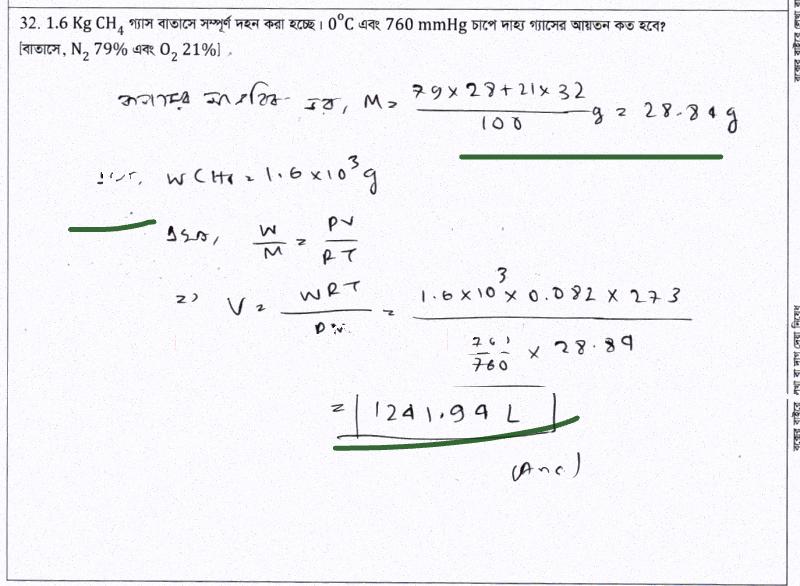 32. 1.6 Kg CH4 গ্যাস বাতাসে সম্পূর্ণ দহন করা হচ্ছে। 0°C এবং 760 mmHg চাপে দাহ্য গ্যাসের আয়তন কত হবে?
[বাতাসে, N2 79% এবং O2 21%]
ভর, M = (79 × 28 + 21 × 32)/100 g = 28.84 g
W CH4 = 1.6 × 10^3 g
W/M = PV/RT
⇒ V = WRT/PM = (1.6 × 10^3 × 0.082 × 273)/(760/760 × 28.84)
= 1241.94 L
(Ans)